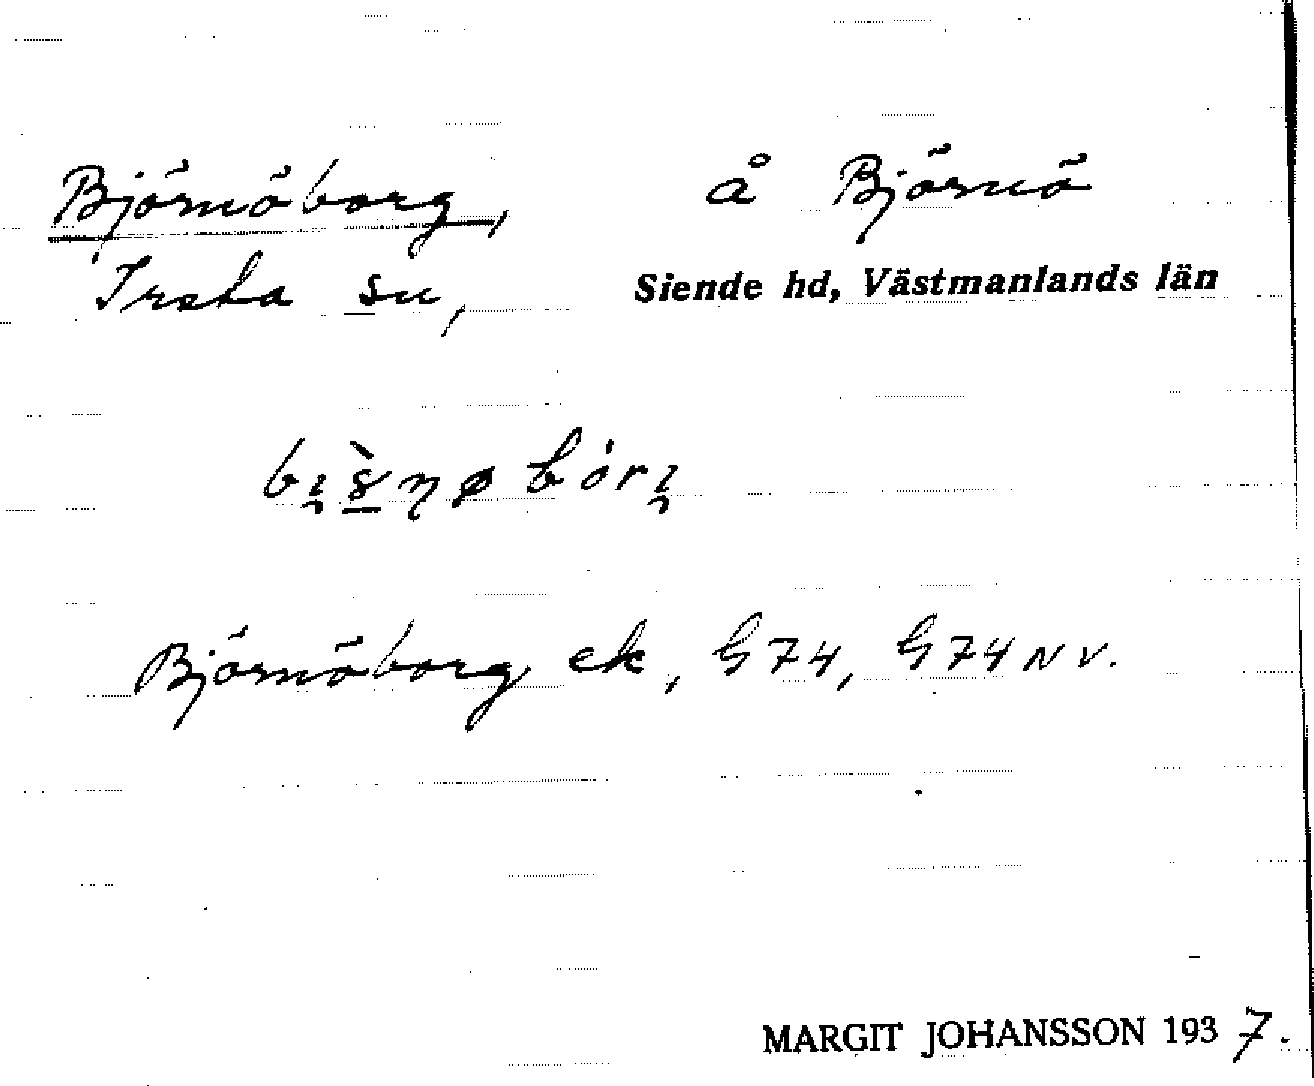 Björnöborg, å Björnö
Irsta sn, Siende hd, Västmanlands län
Björnöborg ek, G74, G74 NV.
MARGIT JOHANSSON 1937.